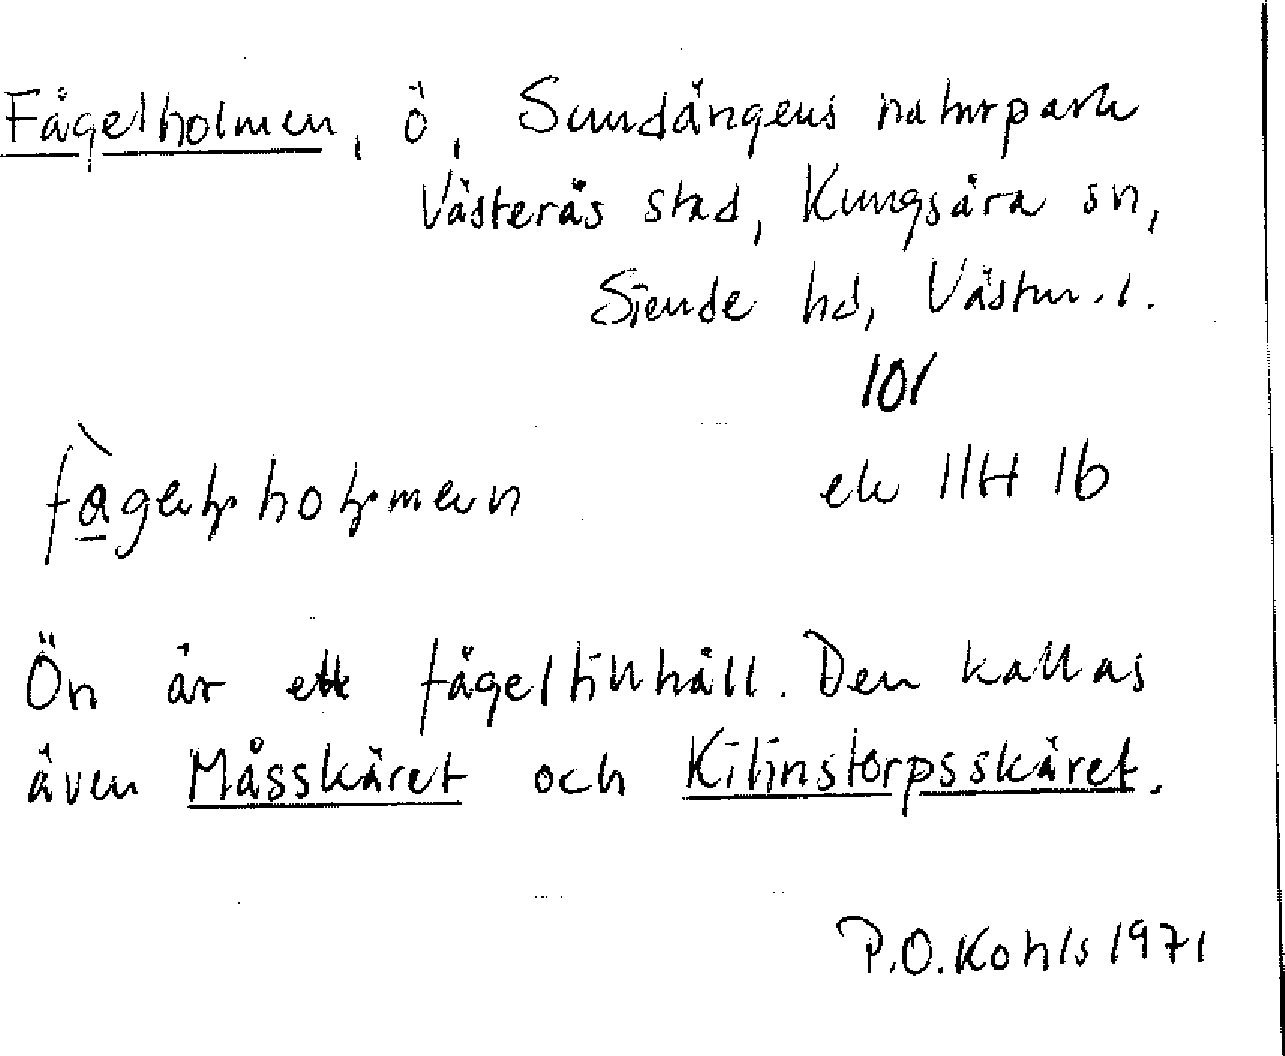 Fågelholmen, ö, Sundängens naturpark
Västerås stad, Kungsåra sn,
Siende hd, Västm. l.
101
ek 11H 1b
Ön är ett fågeltillhåll. Den kallas
även Måsskäret och Kitinstorpsskäret.
P.O. Kohls 1971